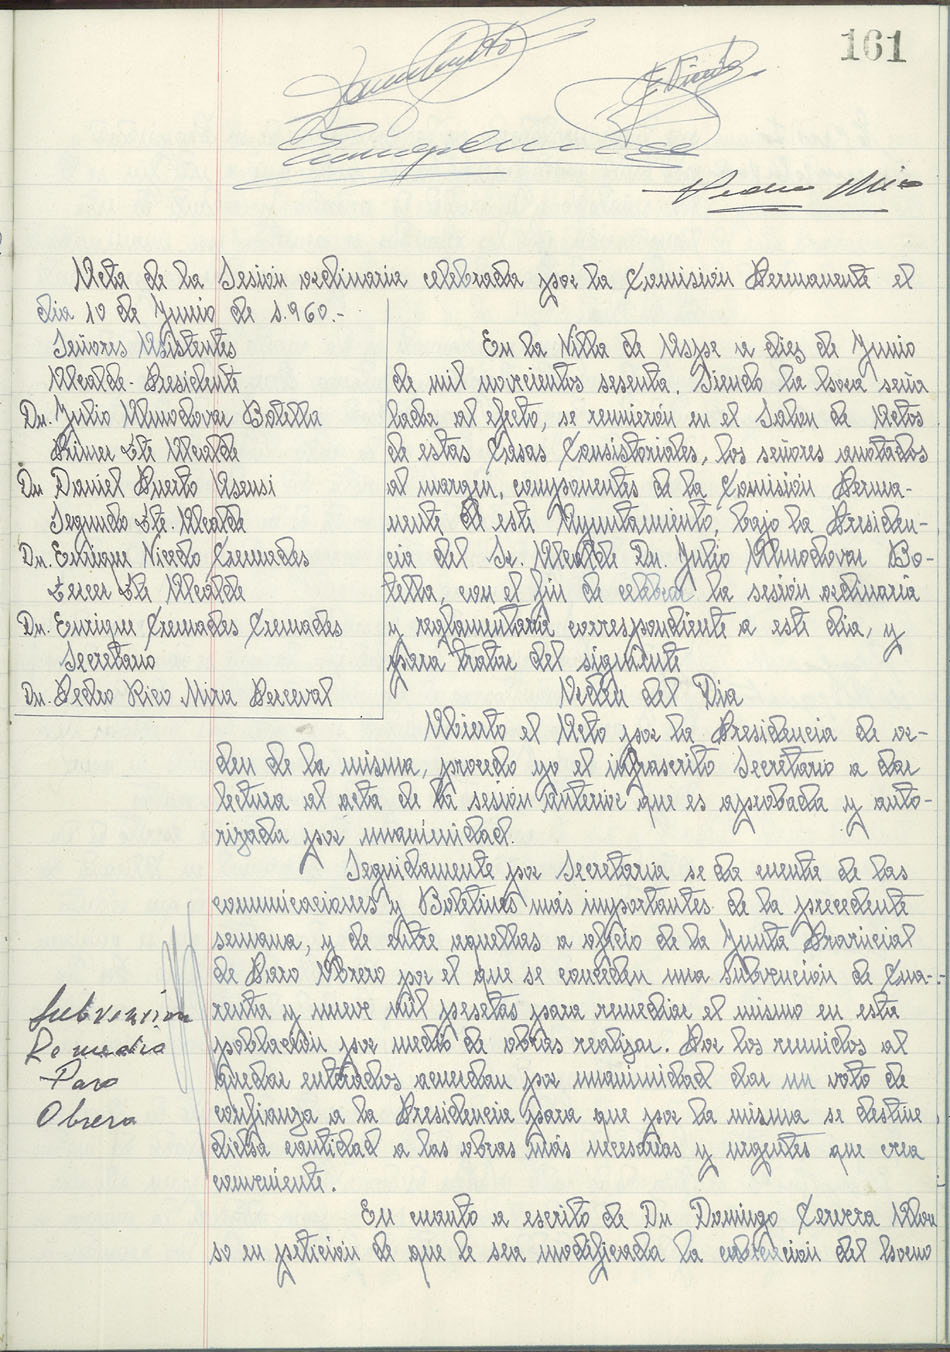 161
Pedro Mira
Acta de la Sesión ordinaria celebrada por la Comisión Permanente el
dia 10 de Junio de 1.960.-
Señores Asistentes
Alcalde-Presidente
Dn. Julio Almodovar Botella
Primer Tte Alcalde
Dn Daniel Puerto Asensi
Segundo Tte. Alcalde
Dn. Enrique Vicedo Cremades
Tercer Tte Alcalde
Dn. Enrique Cremades Cremades
Secretario
Dn. Pedro Rico Mira Perceval
En la Villa de Aspe a diez de Junio
de mil novecientos sesenta. Siendo la hora seña
lada al efecto, se reunierón en el Salon de Actos
de estas Casas Consistoriales, los señores anotados
al margen, componentes de la Comisión Perma-
nente de este Ayuntamiento, bajo la Presiden-
cia del Sr. Alcalde Dn. Julio Almodovar Bo-
tella, con el fin de celebrar la sesión ordinaria
y reglamentaria correspondiente a este dia, y
para tratar del siguiente
Orden del Dia
Abierto el Acto por la Presidencia de or-
den de la misma, procedo yo el infrascrito Secretario a dar
lectura al acta de la sesión anterior que es aprobada y auto-
rizada por unanimidad.
Seguidamente por Secretaria se da cuenta de las
comunicaciones y Boletines más importantes de la precedente
semana, y de entre aquellas a oficio de la Junta Provincial
de Paro Obrero por el que se conceden una subvención de Cua-
renta y nueve mil pesetas para remediar el mismo en esta
población por medio de obras realizar. Por los reunidos al
quedar enterados acuerdan por unanimidad dar un voto de
confianza a la Presidencia para que por la misma se destine
dicha cantidad a las obras más necesarias y urgentes que crea
conveniente.
Subvención
Remedio
Paro
Obrero
En cuanto a escrito de Dn Domingo Cervera Alon
so en petición de que le sea modificada la del horno